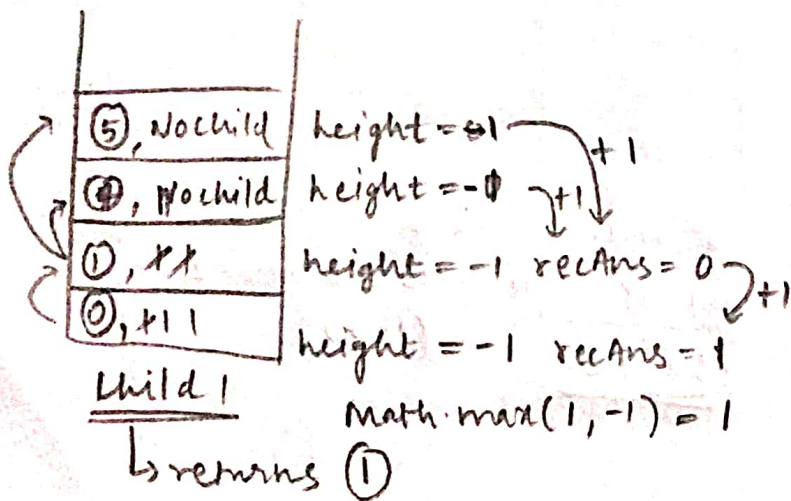 ⑤, Nochild height = -1 +1
④, Nochild height = -1 +1
①, ++ height = -1 recAns = 0 +1
⓪, +11 height = -1 recAns = 1
Child 1 Math.max(1, -1) = 1
↳ returns ①